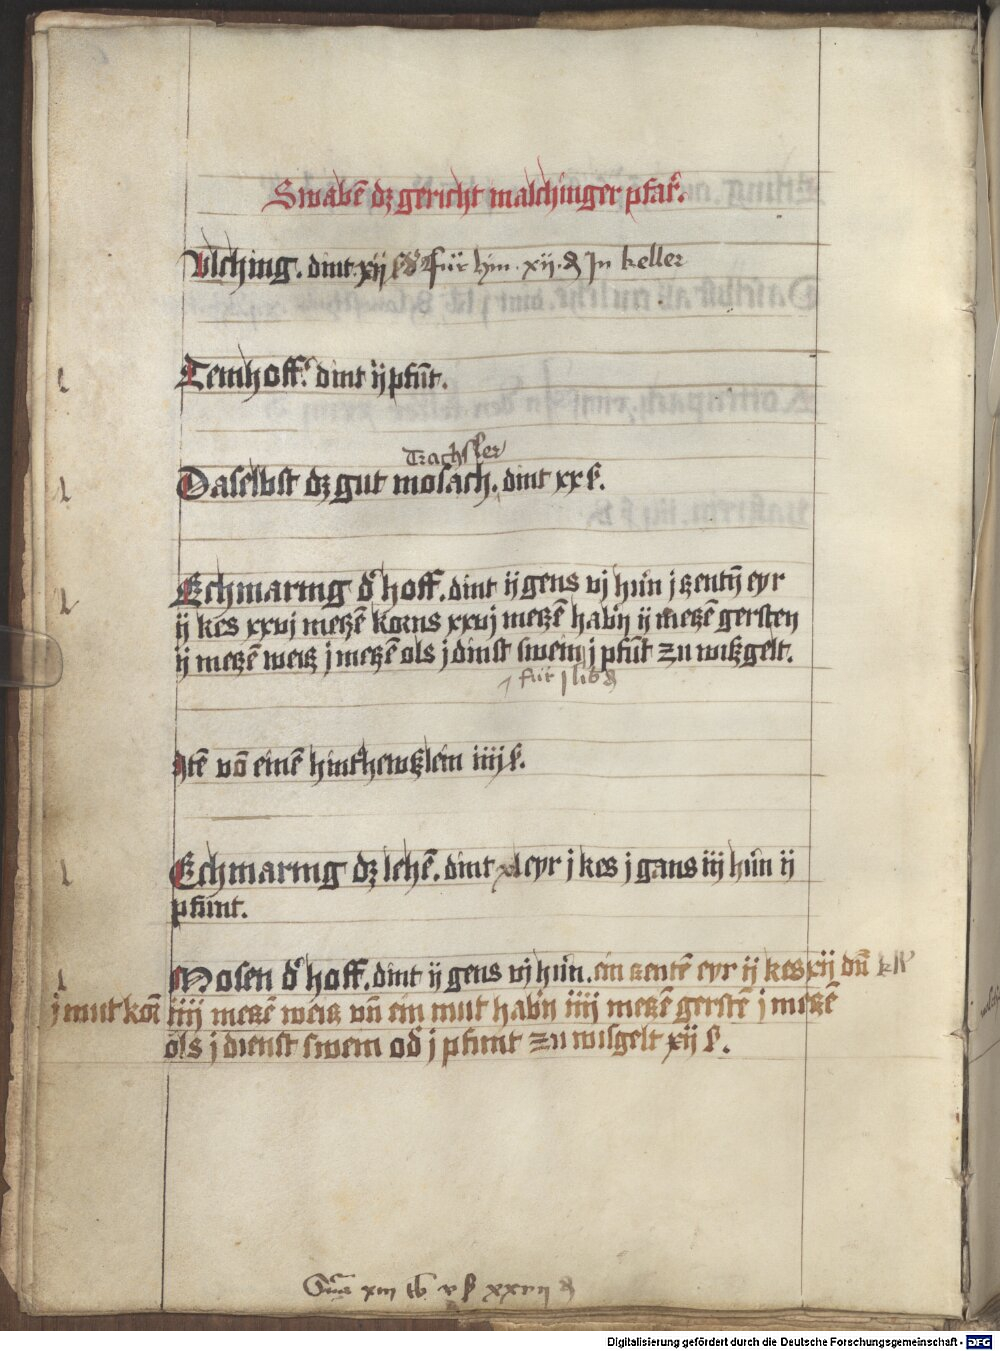 Swabē dz gericht malchinger pfar̄.
Vlching. dint xij ß ď für hin xij ₰ In keller
Temhoff. dint ij pfūt.
Trachsler
Daselbst dz gut mosach. dint xx ß.
Echmaring ď hoff. dint ij gens vj hūn j zentn̄ eyr
ij kes xxvj meczē korns xxvj meczē habn̄ ij meczē gersten
ij meczē weisz j meczē ols j dinst swein j pfūt zu wiszgelt.
für j lib ₰
Itē vō einē hinťhewszlein iiij ß.
Echmaring dz lehē. dint xl eyr j kes j gans iij hūn ij
pfunt.
Mosen ď hoff. dint ij gens vj hūn. ein zentē eyr ij kes xij dn̄
j mut korn̄ iiij meczē weisz vn̄ ein mut habn̄ iiij meczē gerstē j meczē
ols j dienst swein oď j pfunt zu wisgelt xij ß.
xiii lb v ß xxvii ₰
Digitalisierung gefördert durch die Deutsche Forschungsgemeinschaft - DFG